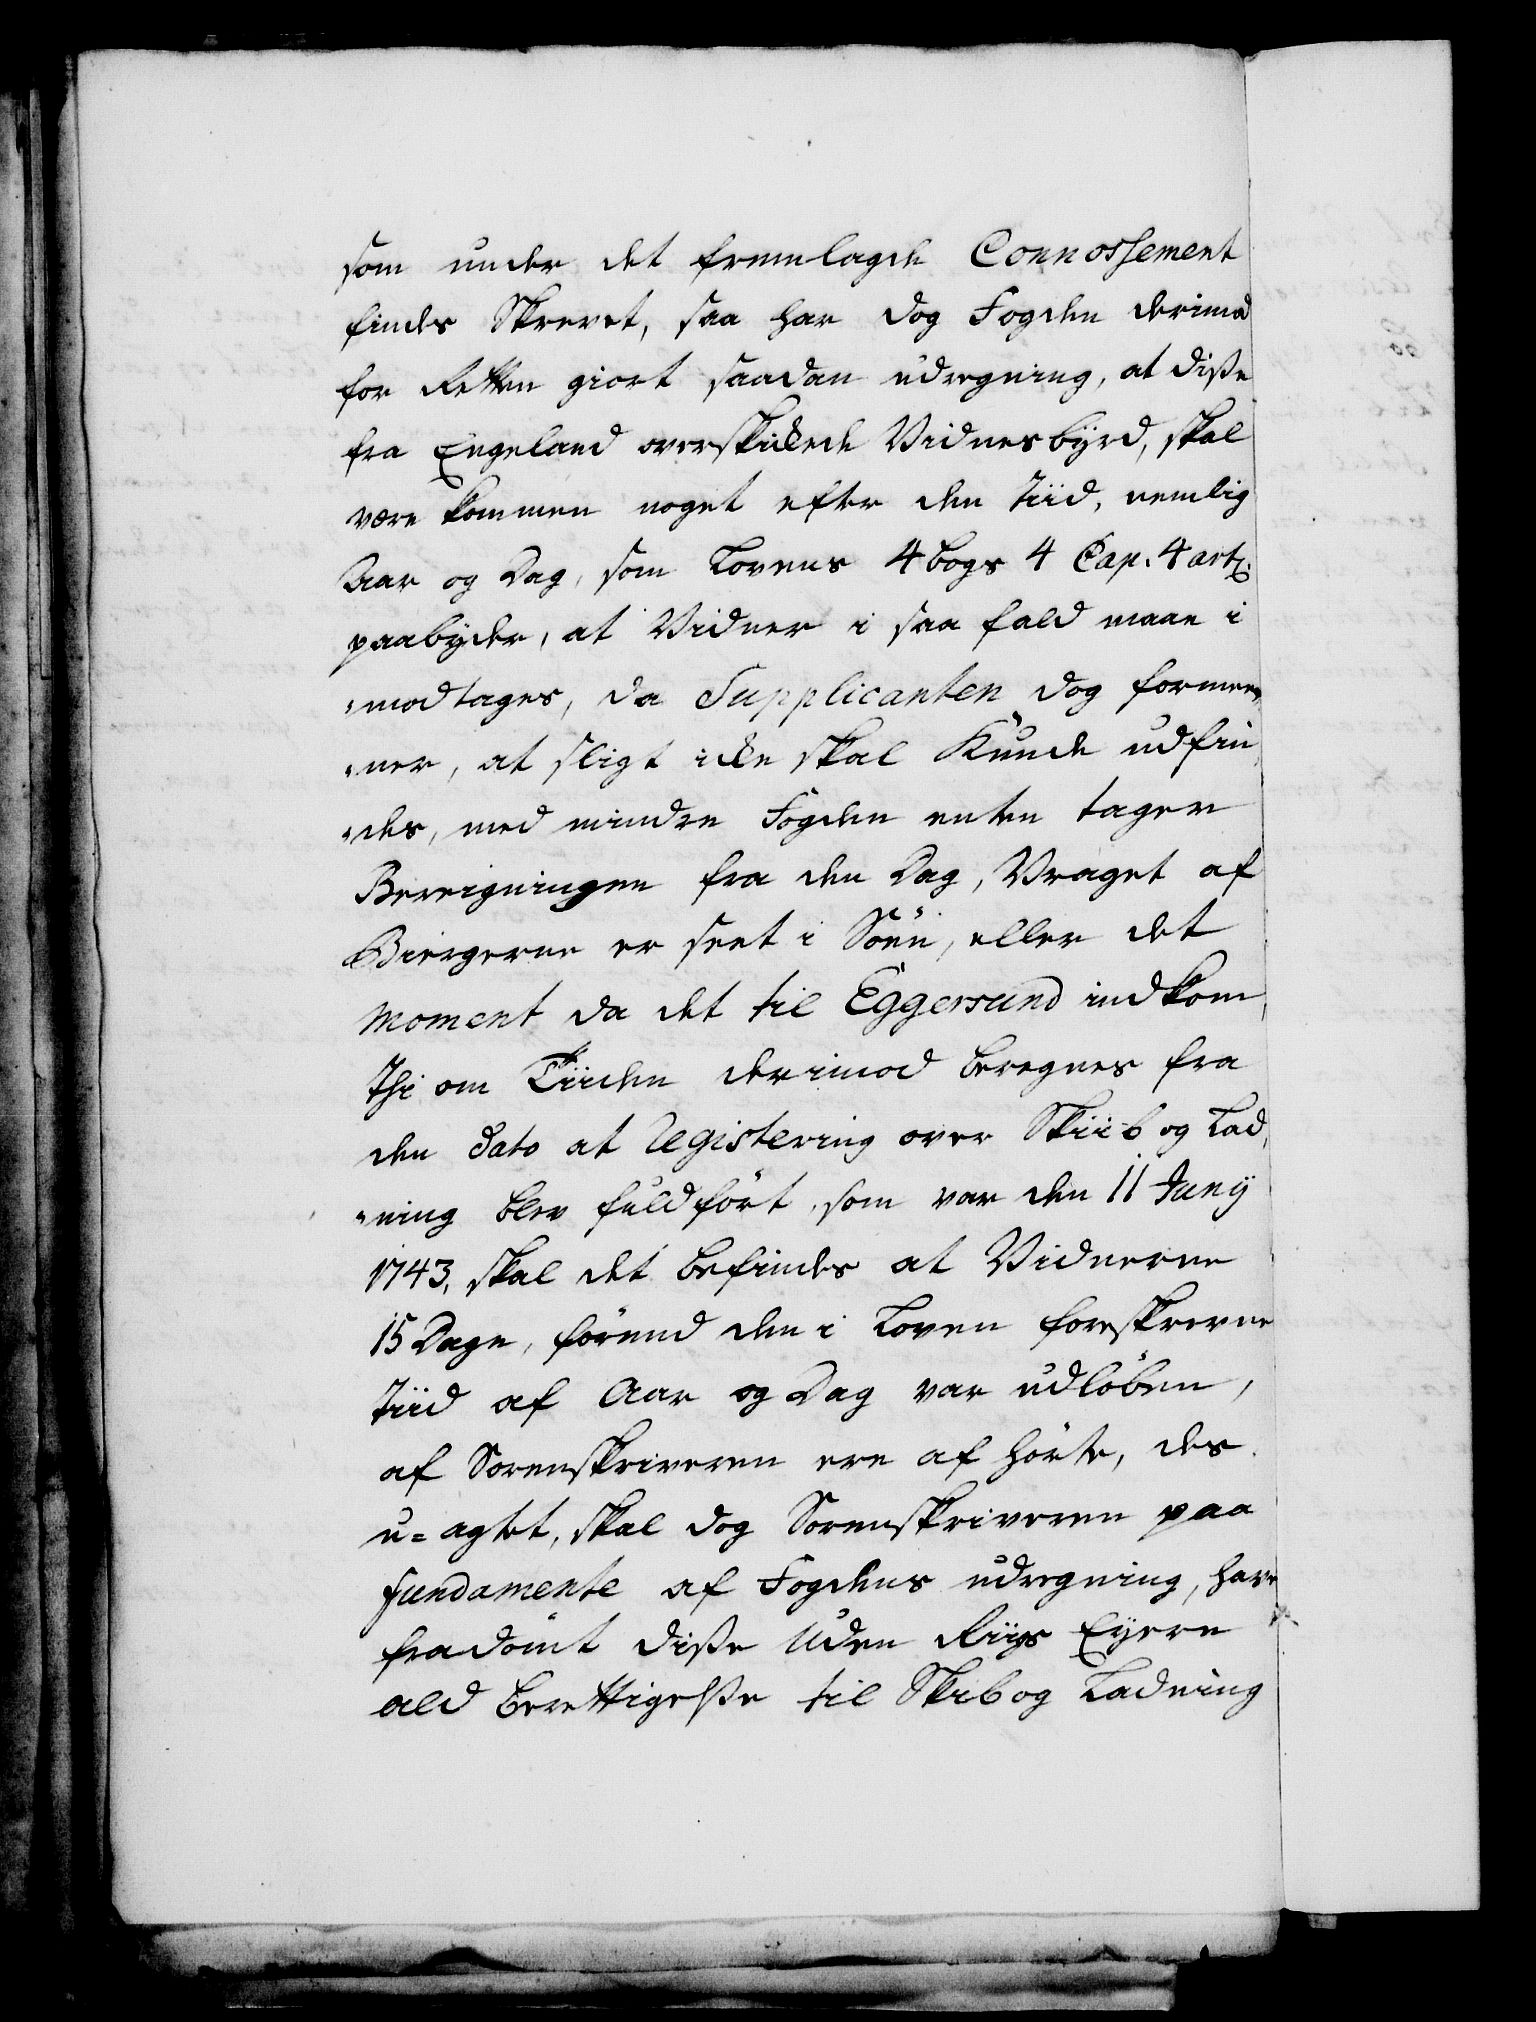 som under det fremlagde Connossement
findes Skrevet, saa har dog Fogden derimod
for Retten giort saadan udregning, at disse
fra Engeland overskikede Vidnesbyrd, skal
være kommen noget efter den Tiid, nemlig
Aar og Dag, som Lovens 4 bogs 4 Cap. 4 art:
paabyder, at Vidner i saa fald maae i
„modtages, da Supplicanten dog formee„
„ner, at sligt icke skal Kunde udfin„
„des, med mindre Fogden enten tager
Bereigningen fra den Dag, Vraget af
Biergerne er seet i Söen, eller det
moment da det til Eggersund indkom,
Thi om Tiiden derimod beregnes fra
den dato at Registering over Skiib og Lad„
„ning blev fuldfört, som var den 11 Juny
1743, skal det befindes at Vidnerne
15 Dage, förend den i Loven foreskrevne
Tiid af Aar og Dag var udlöben,
af Sorenskriveren ere af hörte, des
u=agtet, skal dog Sorenskriveren paa
fundamente af Fogdens udregning, have
fradömt disse Uden Riigs Eyere
ald berettigelsse til Skib og Ladning